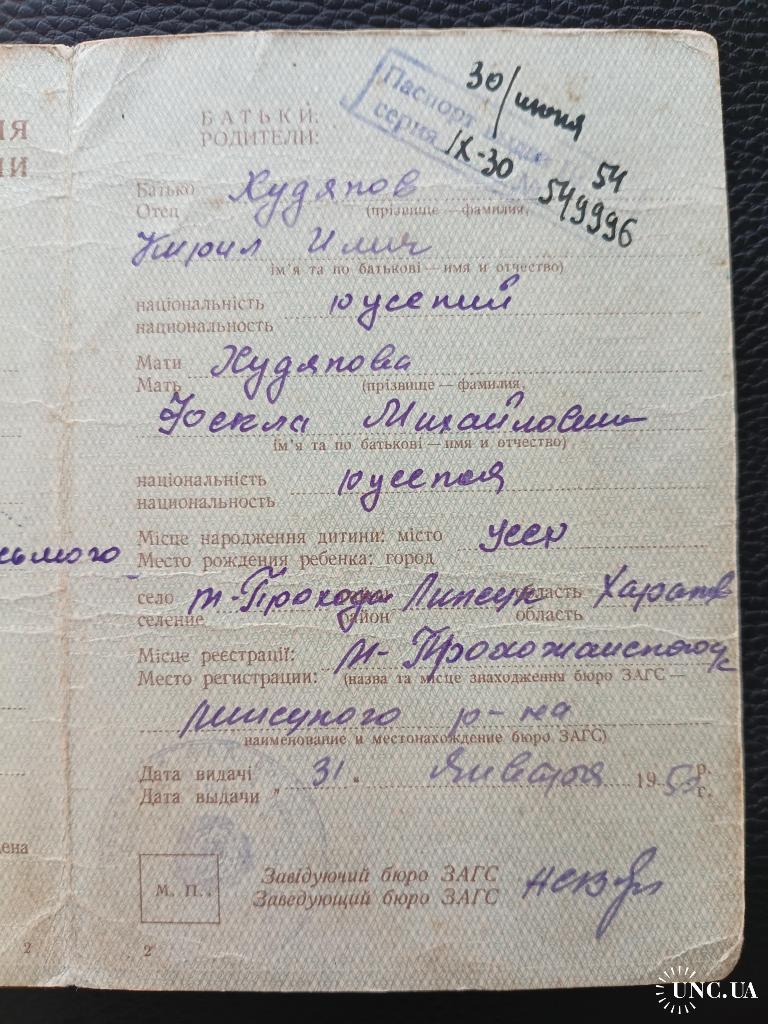 ИЯ
ИИ
БАТЬКИ:
РОДИТЕЛИ:
Паспорт выдан
30/июня 54
серия IX-ЗО № 549996
Батько Худяков
Отец (прізвище — фамилия)
Кирил Илич
ім'я та по батькові — имя и отчество)
національність русский
национальность
Мати Худякова
Мать (прізвище — фамилия)
Фекла Михайловна
(ім'я та по батькові — имя и отчество)
національність русская
национальность
Місце народження дитини: місто УССР
сьмого
Место рождения ребенка: город
село Прохода область
селение район область
Місце реєстрації:
Место регистрации: (назва та місце знаходження бюро ЗАГС —
р-на
наименование и местонахождение бюро ЗАГС)
Дата видачі " 31 " января 195 р.
Дата выдачи г.
ена
М. П.
Завідуючий бюро ЗАГС
Заведующий бюро ЗАГС
2
2
UNC.UA